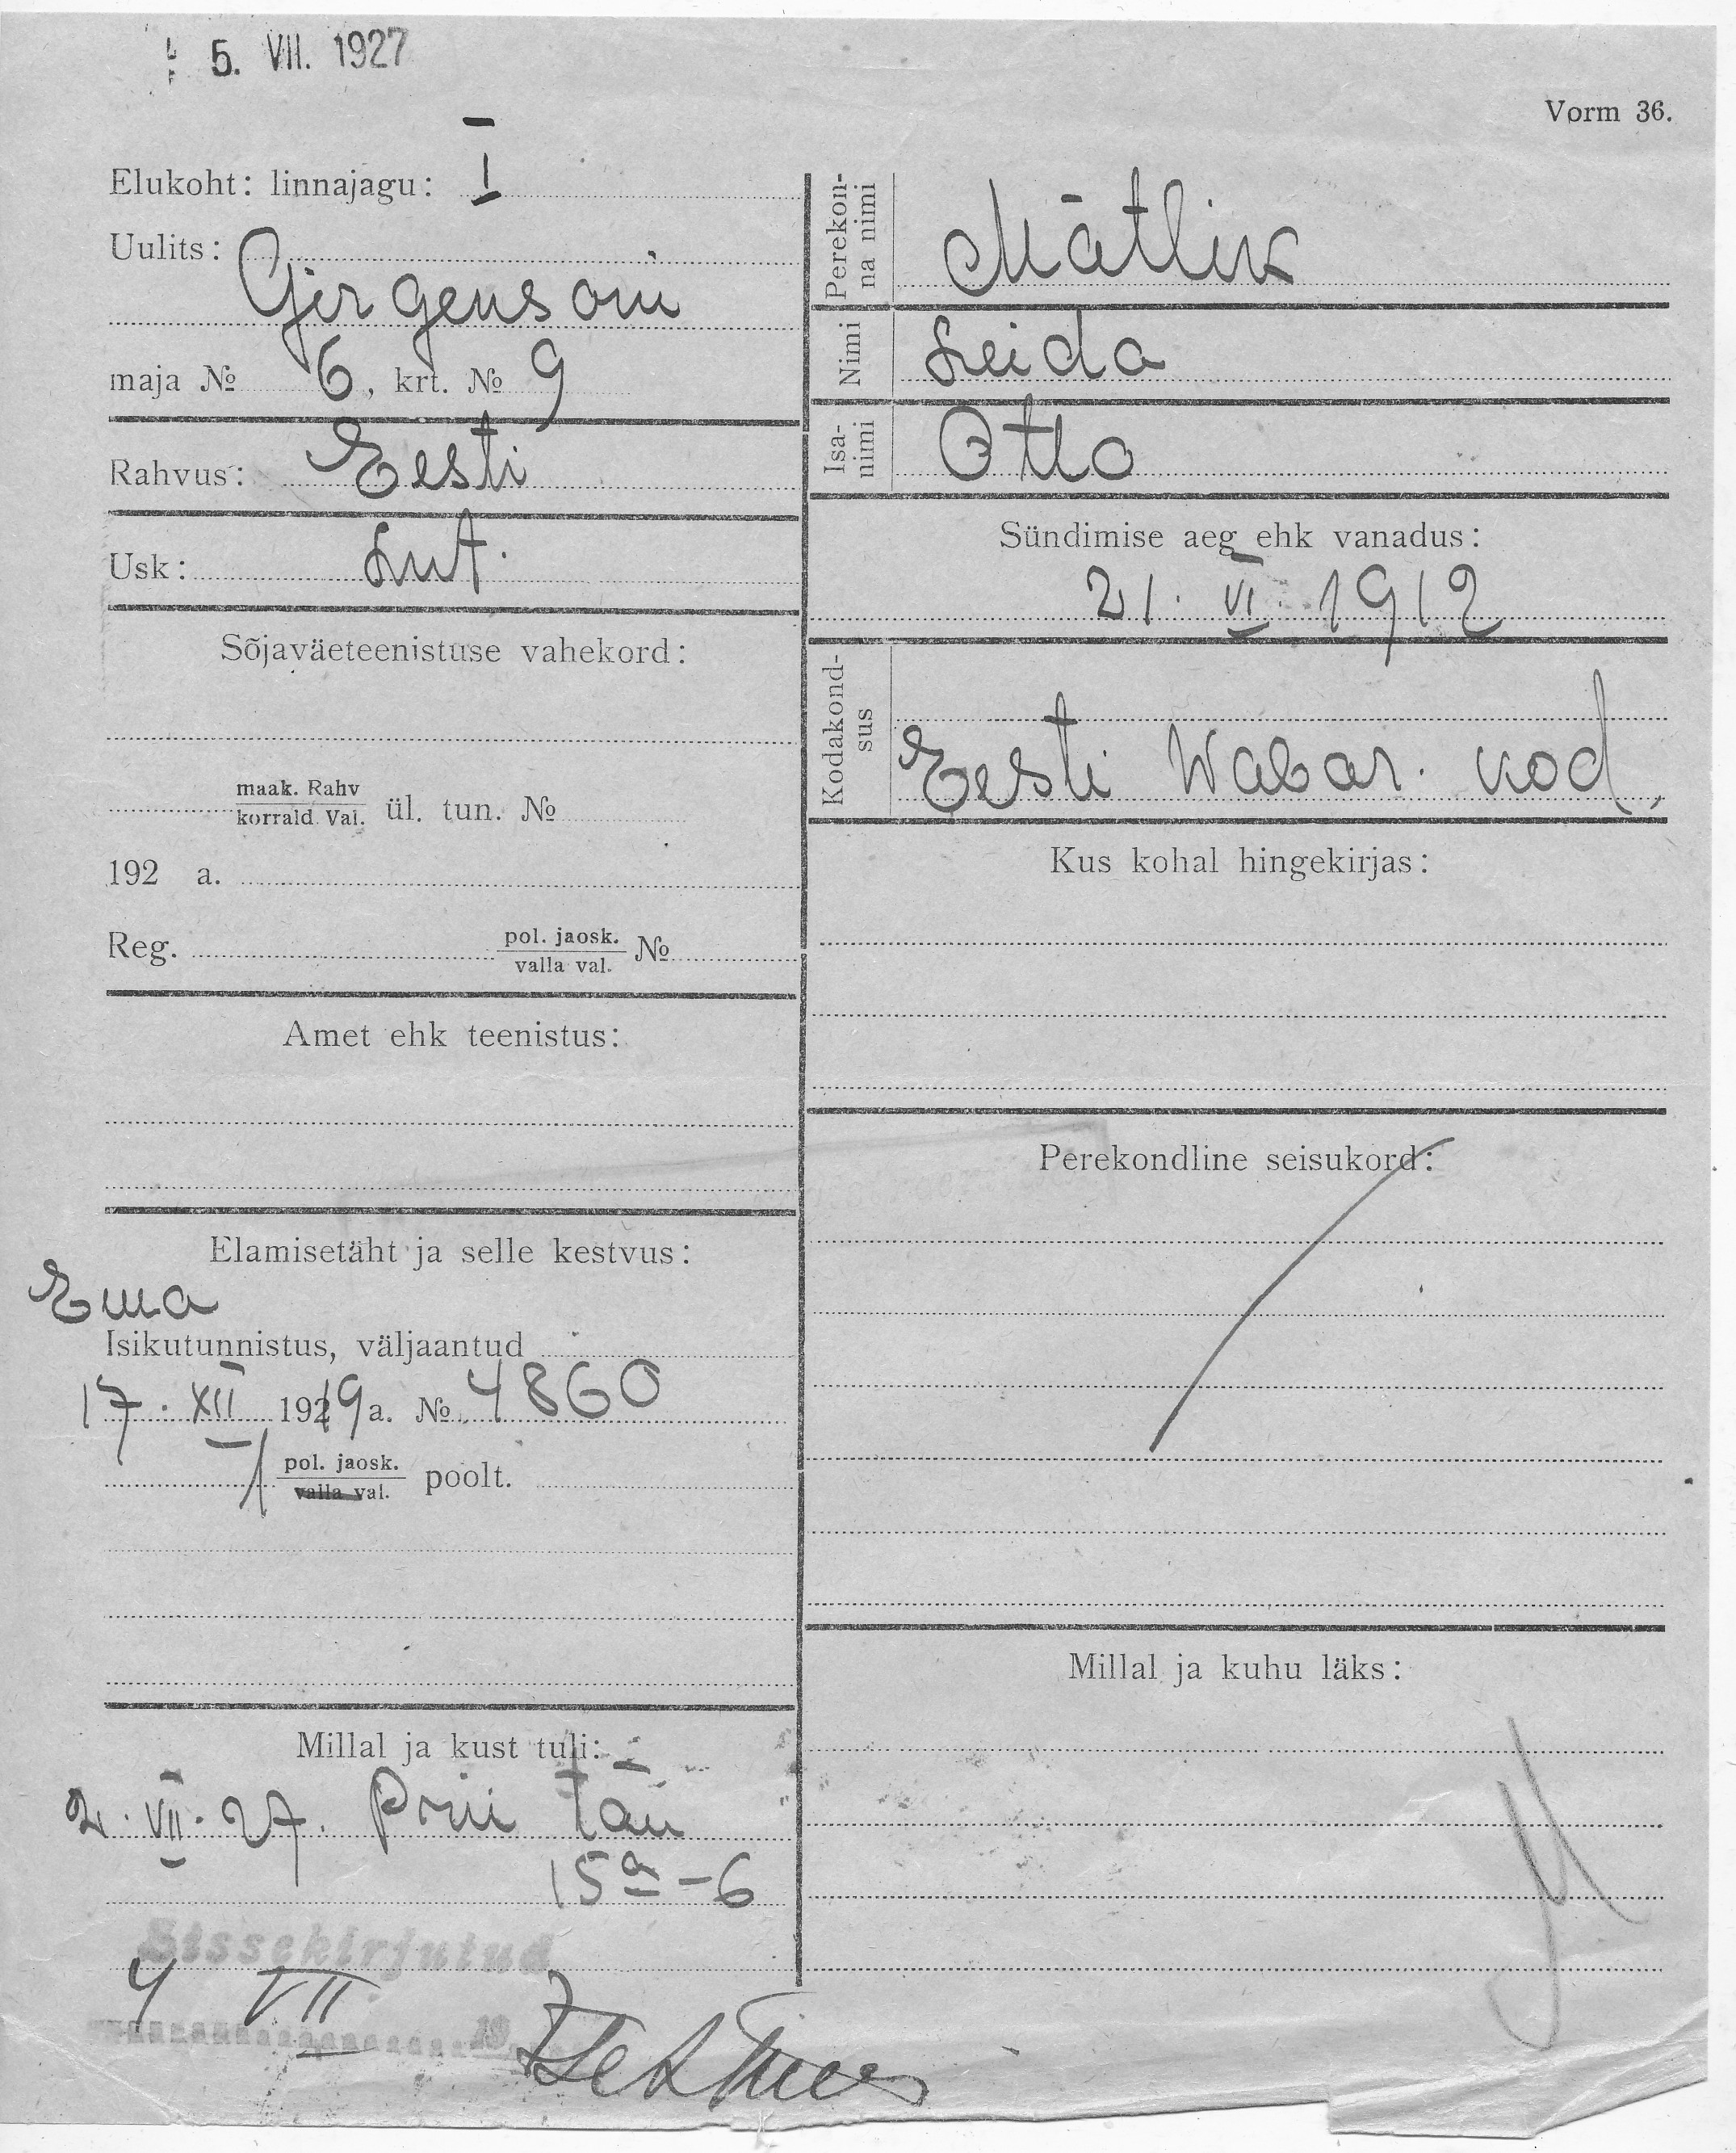 5. VII. 1927
Vorm 36.
Elukoht: linnajagu: I
Uulits:
Girgensoni
maja № 6, krt. № 9
Rahvus: Eesti
Usk: Lut.
Sõjaväeteenistuse vahekord:
maak. Rahv
korrald. Val. ül. tun. №
192 a.
Reg. pol. jaosk. №
valla val.
Amet ehk teenistus:
Elamisetäht ja selle kestvus:
Ema
Isikutunnistus, väljaantud
17. XII 1919 a. № 4860
1 pol. jaosk. poolt.
valla val.
Millal ja kust tuli:
2. VII. 27. Prii tän
15a - 6
Sissekirjutud
4 VII
19
Perekon-
na nimi
Mätlik
Nimi
Leida
Isa-
nimi
Otto
Sündimise aeg ehk vanadus:
21. VI. 1912
Kodakond-
sus
Eesti Wabar. kod.
Kus kohal hingekirjas:
Perekondline seisukord:
Millal ja kuhu läks: